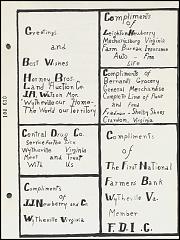 Greetings
and
Best Wishes
Horney Bros.
Land Auction Co.
Wytheville our Home-
The World our Territory
Compliments
of
Leighton Newberry
Mechanicsburg Virginia
Farm Bureau Insurance
Auto - Fire
Life
Compliments of
Bernard's Grocery
General Merchandise
Complete Line of Food
and Feed
Freedman - Shelby Shoes
Crandon, Virginia
Central Drug Co.
Service For The Sick
Wytheville Virginia
Meet and Treat
With Us
Compliments
of
The First National
Farmers Bank
Wytheville Va.
Member
F. D. I. C.
Compliments
of
J.J. Newberry and Co.
Wytheville Virginia